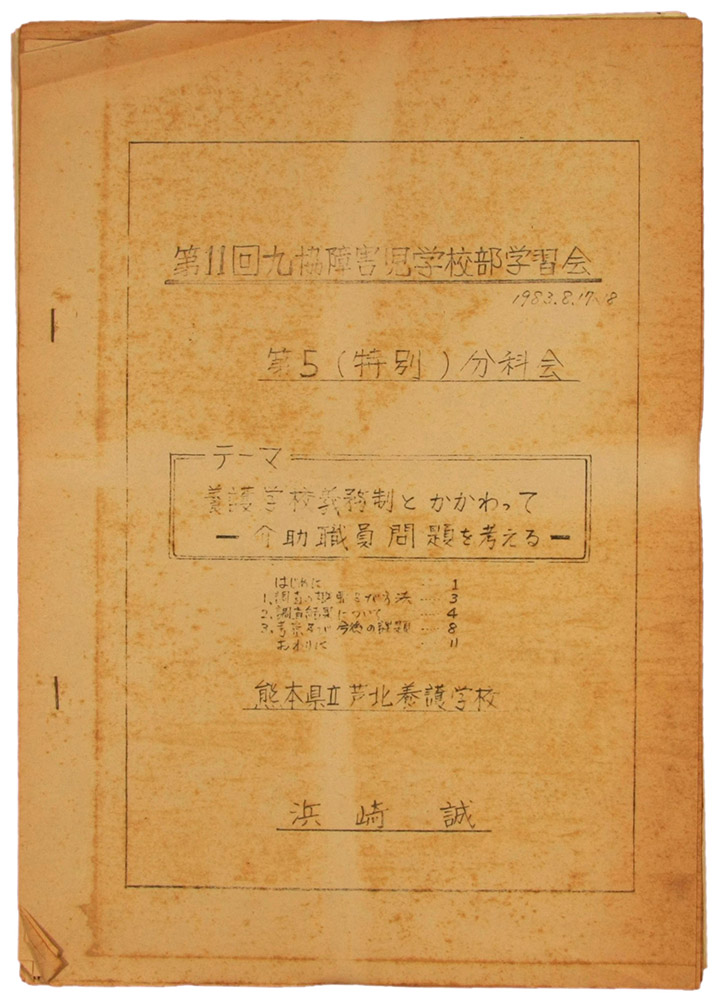 第11回九協障害児学校部学習会
1983.8.17.18
第5(特別)分科会
テーマ
養護学校義務制とかかわって
ー介助職員問題を考えるー
はじめに ‥‥ 1
1.調査の概要と方法 ‥‥ 3
2.調査結果について ‥‥ 4
3.考察及び今後の課題 ‥‥ 8
おわりに ‥‥ 11
熊本県立芦北養護学校
浜崎 誠